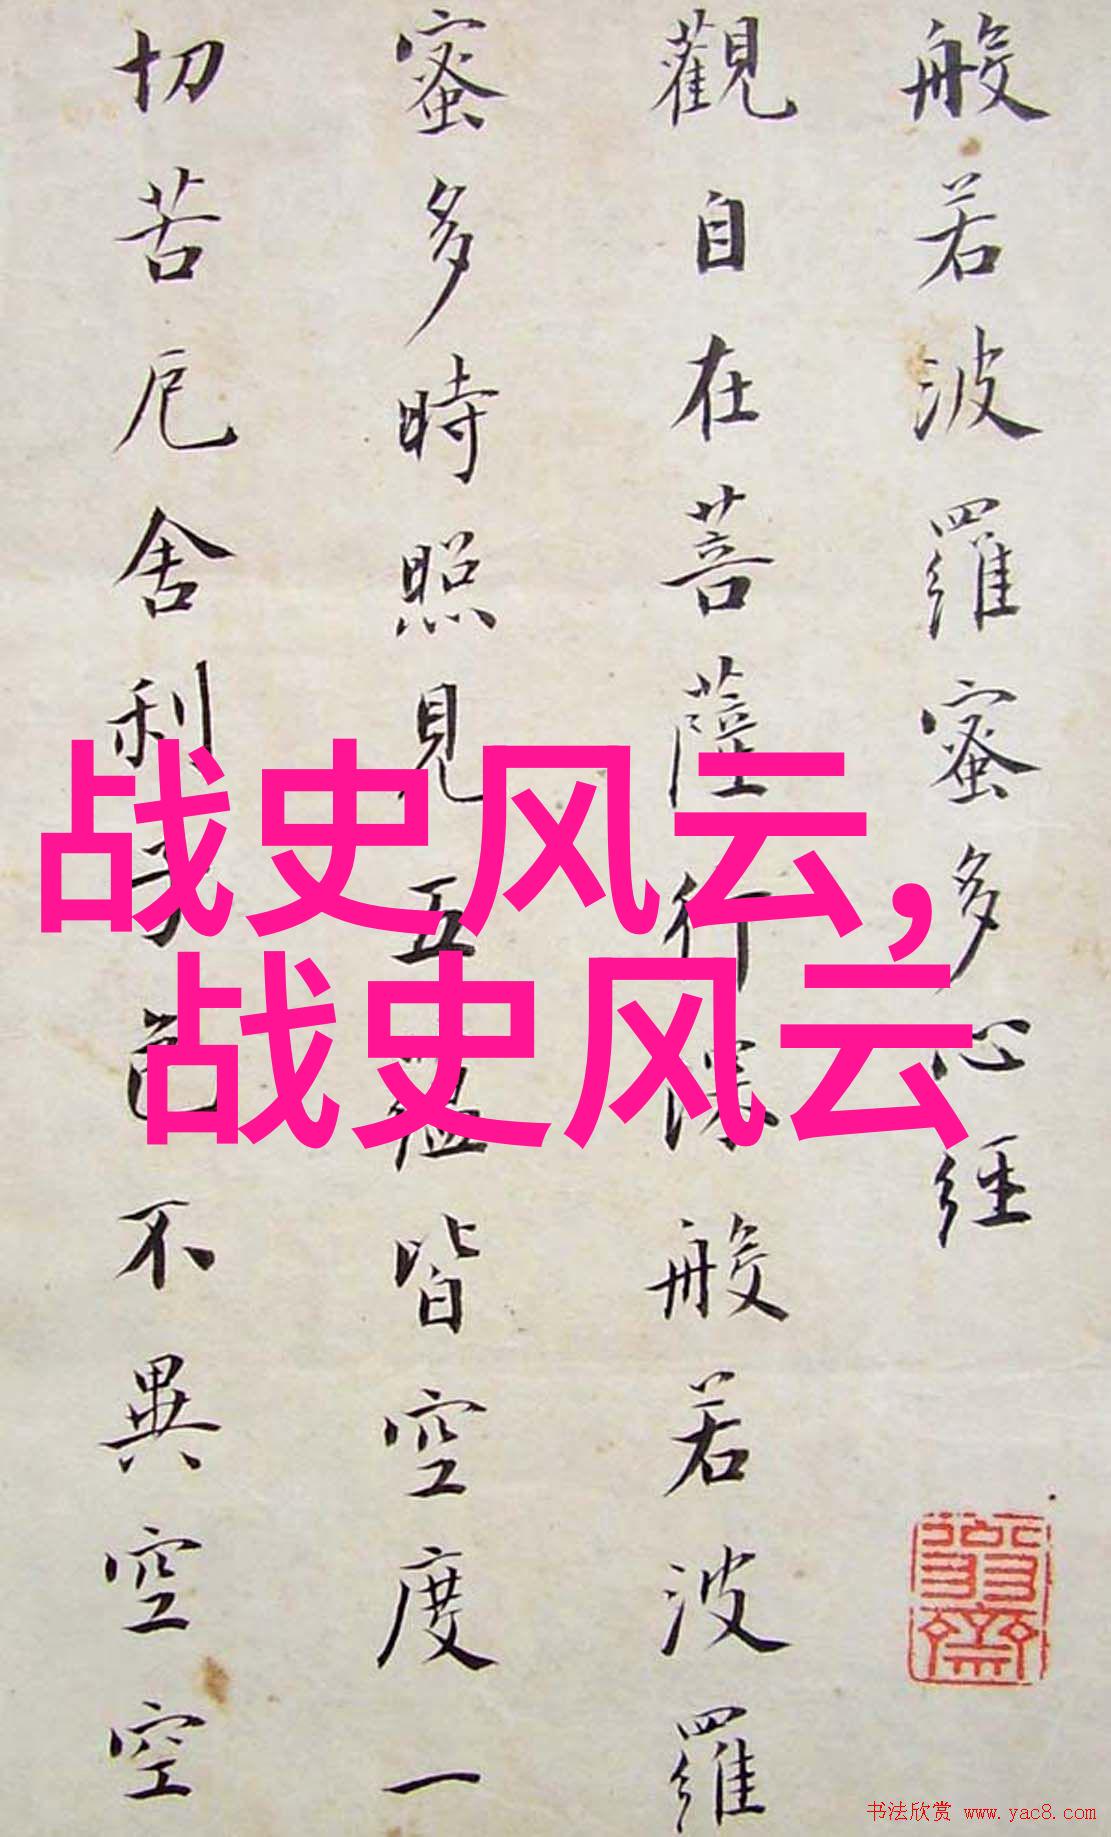 般若波羅蜜多心經
觀自在菩薩行深般若波羅
蜜多時照見五蘊皆空度一
切苦厄舍利子色不異空空
战史风云,
战史风云
书法欣赏 www.yac8.com